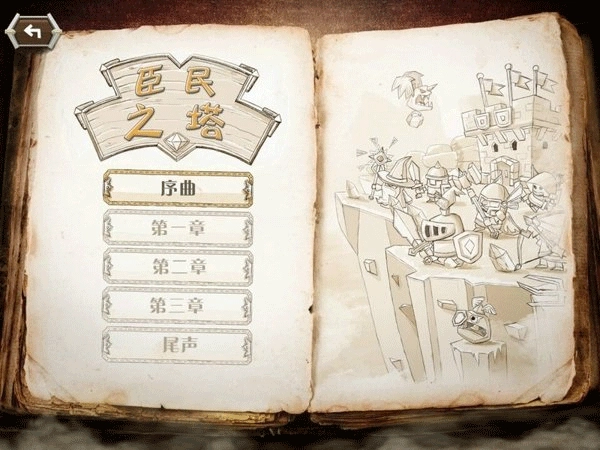 臣民
之塔
序曲
第一章
第二章
第三章
尾声